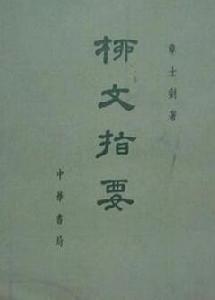 章士釗著
柳文指要
中華書局